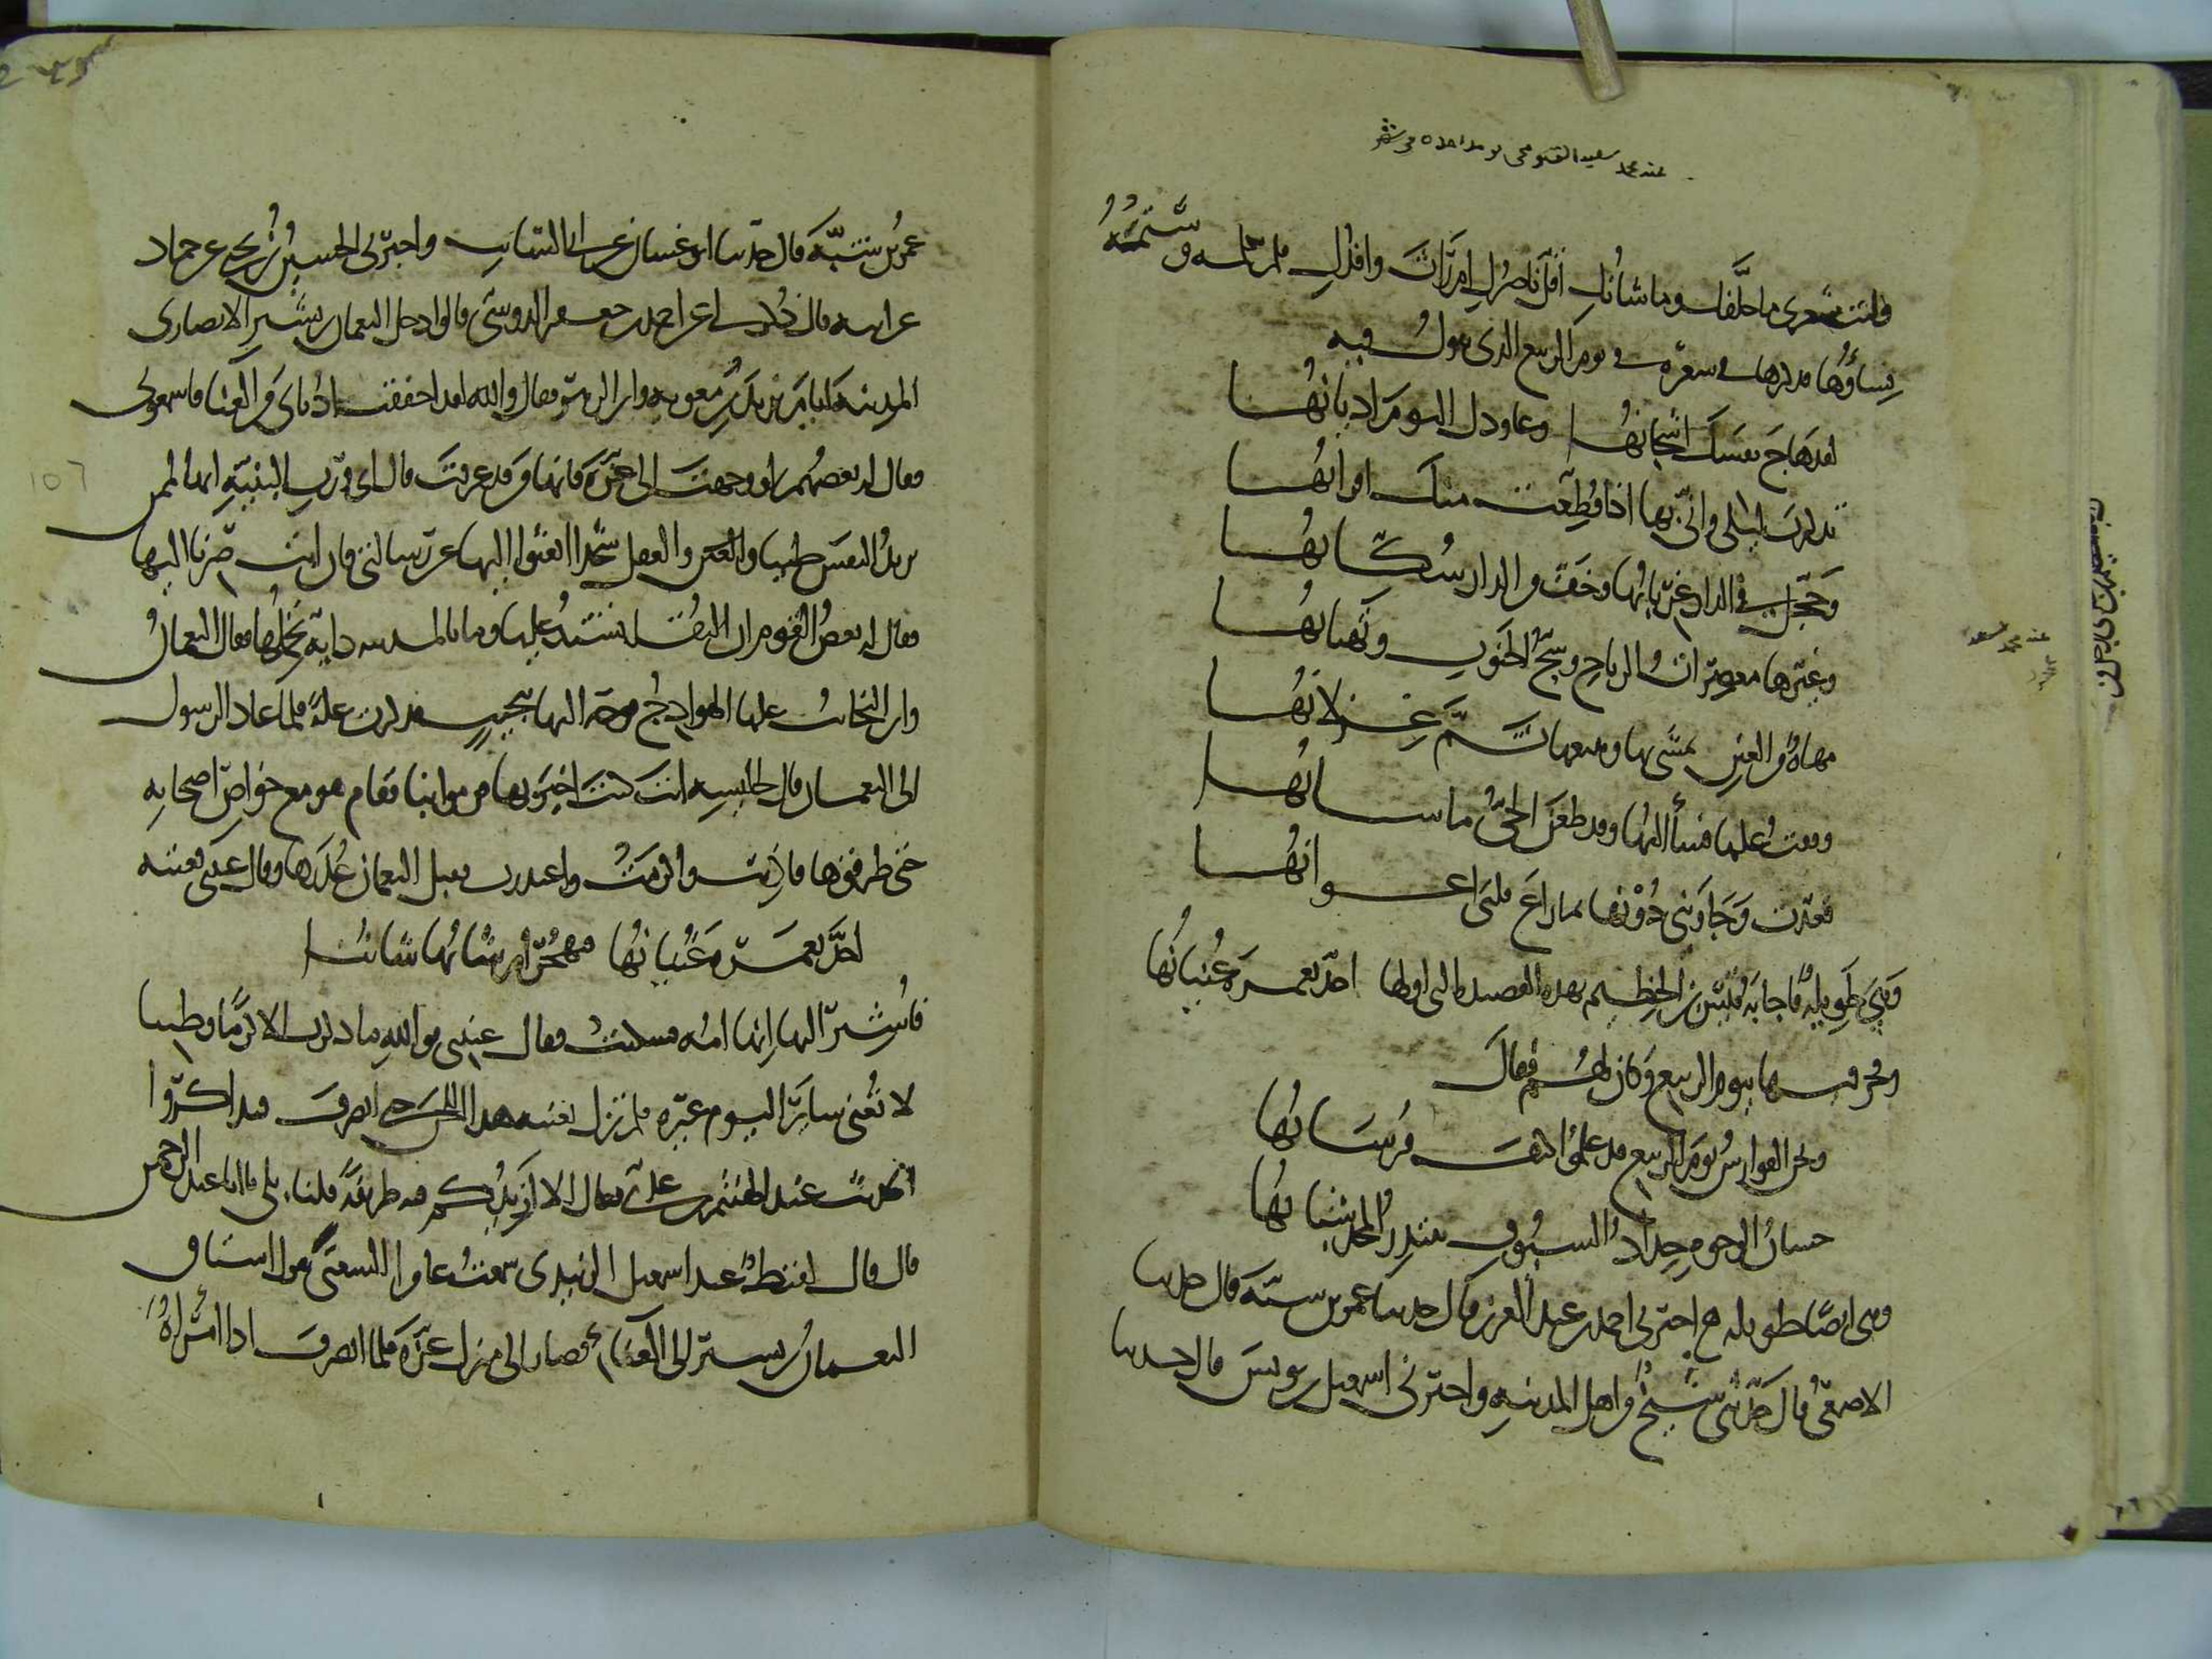 فليت شعري ما حلفك وما شانك أقل ناصرا لي أم رأيك وأقذل فلم تكلمه وشتمته
نساؤها فذكرها في شعره في يوم الربيع الذي يقول فيه
لقد هاج نفسك أشجانها وعاودك اليوم أديانها
تذكرت ليلى وأنى بها إذا قطعت منك أقرانها
وحجل في الدار غربانها وخف من الدار سكانها
وغيرها معصرات الرياح وسح الجنوب وتهتانها
مهاة من العين تمشي بها ومعها ثم غزلانها
وقفت عليها فساءلتها وقد ظعن الحي ما شانها
فعيت وجاوبني دونها بما راع قلبي أعوانها
وهي طويلة فأجابه قيس بن الخطيم بهذه القصيدة التي أولها أجد بعمرة غنيانها
وفخر فيها بيوم الربيع وكان لهم فقال
ونحن الفوارس يوم الربيع قد علموا كيف فرسانها
حسان الوجوه حداد السيوف يبتدر المجد شبانها
وهي أيضا طويلة أخبرني أحمد بن عبد العزيز قال حدثنا عمر بن شبة قال حدثنا
الأصمعي قال حدثني شيخ من أهل المدينة وأخبرني إسمعيل بن يونس قال حدثنا
عمر بن شبة قال حدثنا أبو غسان عن أبي السائب وأخبرني الحسين بن يحيى عن حماد
عن أبيه قال ذكر لي عن أحمد بن جعفر الدوسي قالوا دخل النعمان بن بشير الأنصاري
المدينة في أيام يزيد بن معوية وابن الزبير فقال والله لقد أخفقت أذناي من الغنا فأسمعوني
فقال له بعضهم لو وجهت إلى عزة فإنها من قد عرفت قال إي ورب البنية إنها لممن
يزيد النفس طيبا والعقل شحذا ابعثوا إليها عن رسالتي فإن أبت صرنا إليها
فقال له بعض القوم إن النقلة تشتد عليها وما بالمدينة دابة تحملها فقال النعمان
وأين النجائب عليها الهوادج فوجه إليها بنجيب فذكرت علة فلما عاد الرسول
إلى النعمان قال لجليسه أنت كنت أخبر بها قوموا بنا فقام هو مع خواص أصحابه
حتى طرقوها فأذنت وأكرمت واعتذرت فقبل النعمان عذرها وقال غني فغنته
أجد بعمرة غنيانها فتهجر أم شاننا شانها
فأشير إليها إنها أمه فسكتت فقال غني فوالله ما ذكرت إلا كرما وطيبا
لا تغني سائر اليوم غيره فلم تزل تغنيه هذا اللحن حتى انصرف فتذاكروا
الحديث عند الهيثم بن عدي فقال ألا أزيدكم فيه طريفة قلنا بلى يا أبا عبد الرحمن
قال قال لقيط عند إسمعيل الزبيري سمعت عامرا الشعبي يقول اشتاق
النعمان بن بشير إلى الغناء فصار إلى منزل عزة فلما انصرف إذا امرأة